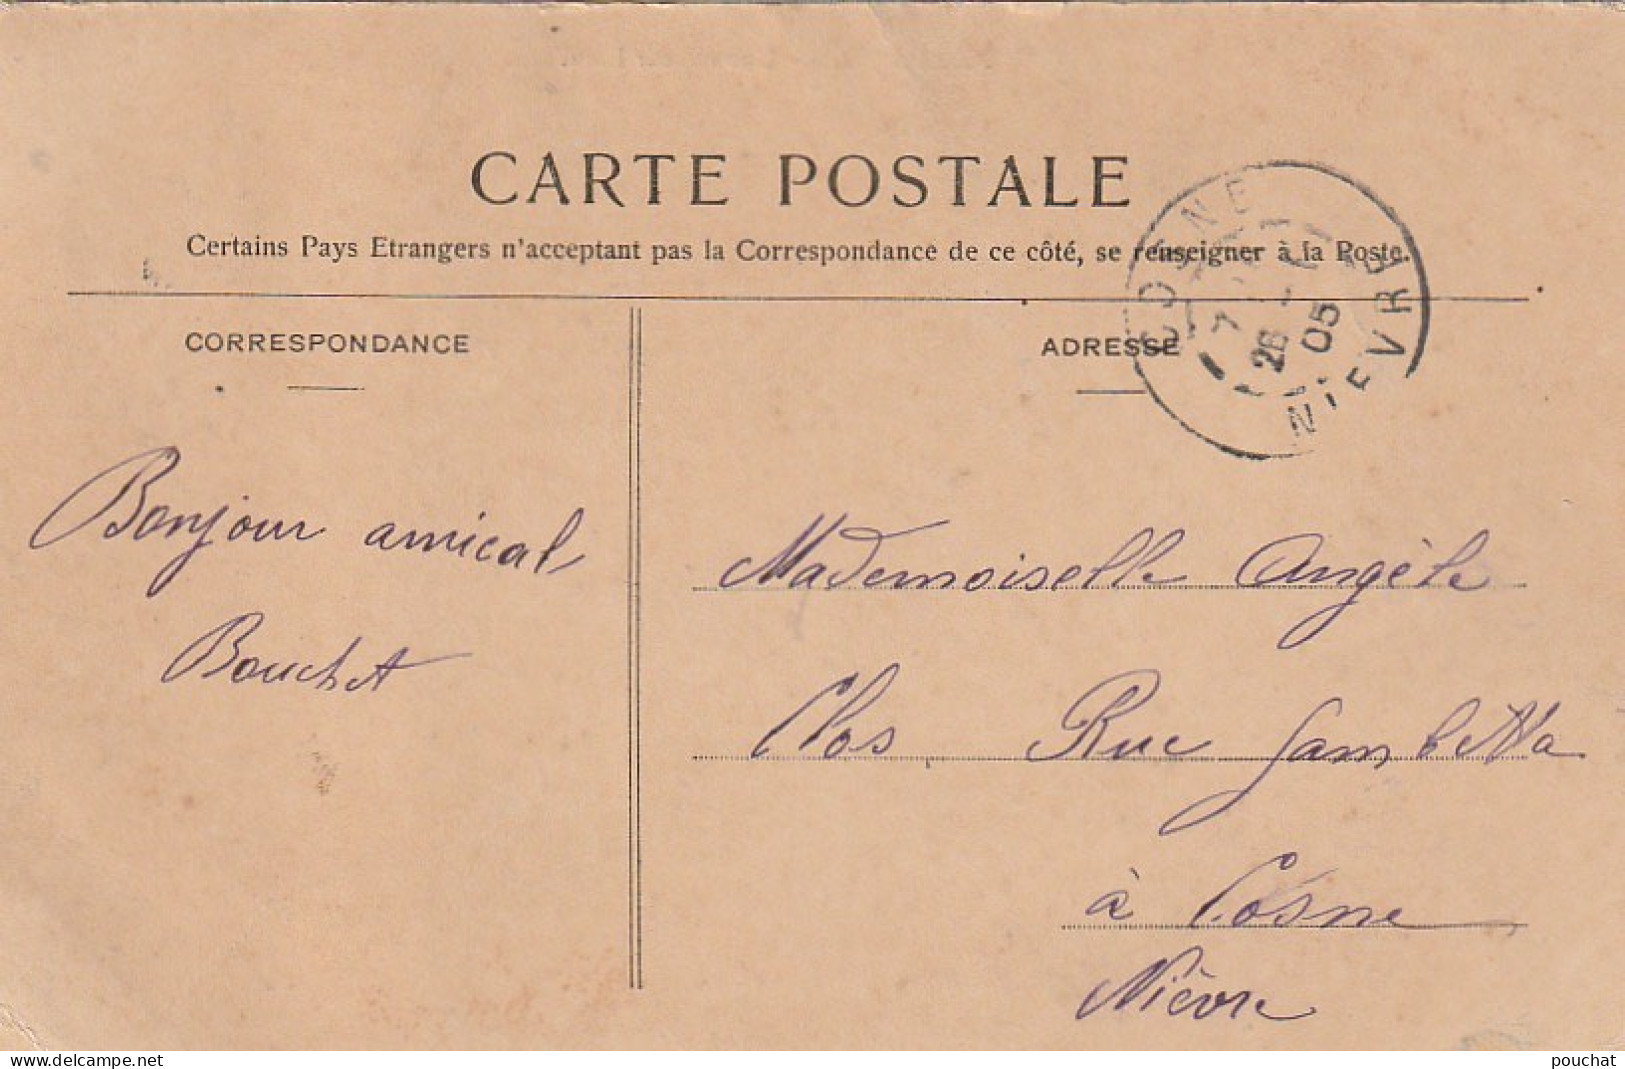 CARTE POSTALE
Certains Pays Etrangers n'acceptant pas la Correspondance de ce côté, se renseigner à la Poste.
COSNE
26
05
NIEVRE
CORRESPONDANCE
Bonjour amical
Bouchet
ADRESSE
Mademoiselle Angèle
Clos Rue Gambetta
à Cosne
Nièvre
www.delcampe.net
pouchat